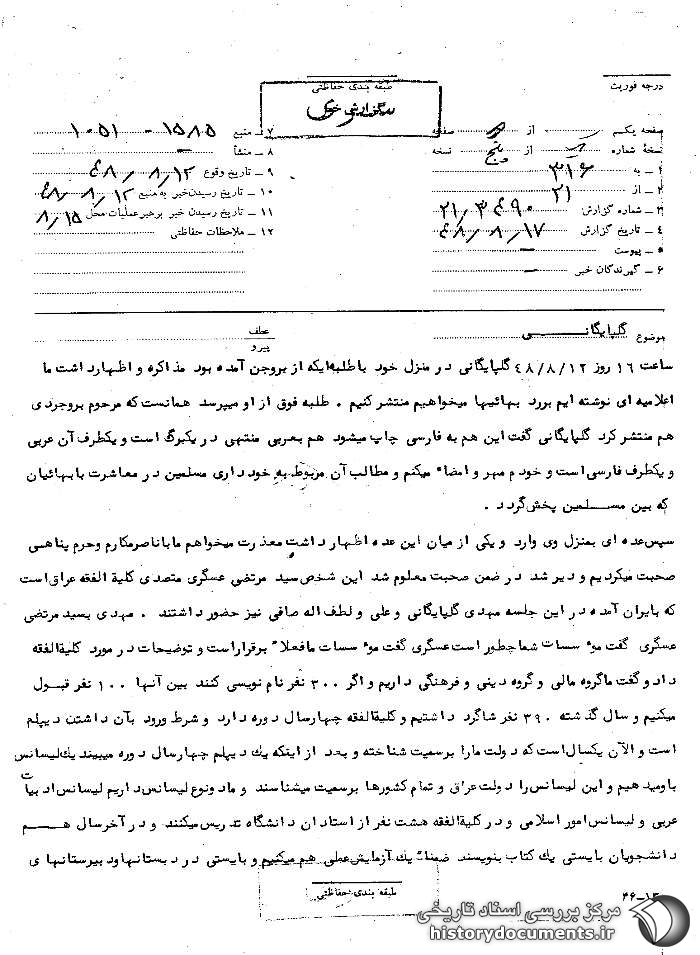 درجه فوریت
طبقه بندی حفاظتی
گزارش خبری
صفحه یکم از صفحه
نسخهٔ شماره از پنج نسخه
۱ ـ به ۳۱۶
۲ ـ از ۲۱
۳ ـ شماره گزارش ۲۱/۳۴۹۰
۴ ـ تاریخ گزارش ۴۸/۸/۱۷
۵ ـ پیوست ـ
۶ ـ گیرندگان خبر ـ
۷ ـ منبع ۱۵۸۵ - ۱۰۵۱
۸ ـ منشأ ـ
۹ ـ تاریخ وقوع ۴۸/۸/۱۲
۱۰ ـ تاریخ رسیدن خبر به منبع ۴۸/۸/۱۲
۱۱ ـ تاریخ رسیدن خبر برهبر عملیات محل ۸/۱۵
۱۲ ـ ملاحظات حفاظتی
موضوع گلپایگانی
عطف
پیرو
ساعت ۱۶ روز ۴۸/۸/۱۲ گلپایگانی در منزل خود با طلبه‌ایکه از بروجن آمده بود مذاکره و اظهارداشت ما
اعلامیه ای نوشته ایم بررد بهائیها میخواهیم منتشر کنیم . طلبه فوق از او میپرسد همانست که مرحوم بروجردی
هم منتشر کرد گلپایگانی گفت این هم به فارسی چاپ میشود هم بعربی منتهی در یکبرگ است و یکطرف آن عربی
و یکطرف فارسی است و خودم مهر و امضاء میکنم و مطالب آن مربوط به خودداری مسلمین در معاشرت با بهائیان
که بین مسلمین پخش گردد .
سپس عده ای بمنزل وی وارد و یکی از میان این عده اظهار داشت معذرت میخواهم ما با ناصر مکارم و حرم پناهی
صحبت میکردیم و دیر شد در ضمن صحبت معلوم شد این شخص سید مرتضی عسگری متصدی کلیة الفقه عراق است
که بایران آمده در این جلسه مهدی گلپایگانی و علی و لطف اله صافی نیز حضور داشتند . مهدی بسید مرتضی
عسگری گفت موٴسسات شما چطور است عسگری گفت موٴسسات ما فعلاً برقرار است و توضیحات در مورد کلیةالفقه
داد و گفت ما گروه مالی و گروه دینی و فرهنگی داریم و اگر ۳۰۰ نفر نام نویسی کنند بین آنها ۱۰۰ نفر قبول
میکنیم و سال گذشته ۳۹۰ نفر شاگرد داشتیم و کلیةالفقه چهارسال دوره دارد و شرط ورود بآن داشتن دیپلم
است و الآن یکسال است که دولت مارا برسمیت شناخته و بعد از اینکه یك دیپلم چهارسال دوره میبیند یك لیسانس
باومیدهیم و این لیسانس را دولت عراق و تمام کشورها برسمیت میشناسند و مادونوع لیسانس داریم لیسانس ادبیات
عربی و لیسانس امور اسلامی و در کلیةالفقه هشت نفر از استادان دانشگاه تدریس میکنند و در آخر سال هم
دانشجویان بایستی یك کتاب بنویسند ضمناً یك آزمایش عملی هم میکنیم و بایستی در دبستانها و دبیرستانهای
طبقه بندی حفاظتی
مرکز بررسی اسناد تاریخی
historydocuments.ir